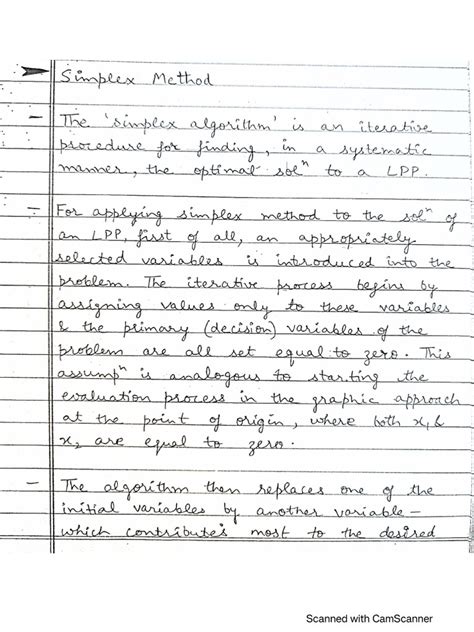 Simplex Method
– The 'simplex algorithm' is an iterative
procedure for finding, in a systematic
manner, the optimal solⁿ to a LPP.
– For applying simplex method to the solⁿ of
an LPP, first of all, an appropriately
selected variables is introduced into the
problem. The iterative process begins by
assigning values only to these variables
& the primary (decision) variables of the
problem are all set equal to zero. This
assumpⁿ is analogous to starting the
evaluation process in the graphic approach
at the point of origin, where both x₁ &
x₂ are equal to zero.
– The algorithm then replaces one of the
initial variables by another variable –
which contributes most to the desired
Scanned with CamScanner